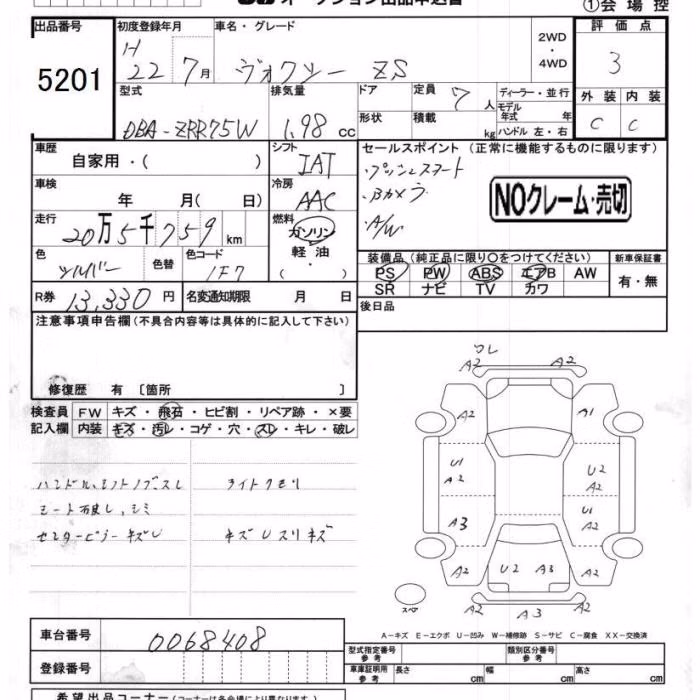 オークション出品申込書
①会場控
出品番号
5201
初度登録年月
H
22 7月
車名・グレード
ヴォクシー ZS
2WD
・
4WD
評価点
3
外装 内装
C C
型式
DBA-ZRR75W
排気量
1.98 cc
ドア
形状
定員 7 人
積載 kg
ディーラー・並行
モデル
年式 年
ハンドル 左・右
車歴
自家用・( )
シフト
IAT
車検
年 月( 日)
冷房
AAC
走行
20万5千759 km
燃料
ガソリン
軽油
( ・ )
色
シルバー
色替
色コード
1F7
R券 13,330 円
名変通知期限 月 日
セールスポイント (正常に機能するものに限ります)
・プッシュスタート
・Bカメラ
・A/W
NOクレーム・売切
装備品 (純正品に限り○をつけてください)
PS PW ABS エアB AW
SR ナビ TV カワ
新車保証書
有・無
後日品
注意事項申告欄 (不具合内容等は具体的に記入して下さい)
修復歴 有 [箇所 ]
検査員
記入欄
FW キズ・飛石・ヒビ割・リペア跡・×要
内装 キズ・汚レ・コゲ・穴・スレ・キレ・破レ
ハンドル、シフトノブスレ
ライトクモリ
シート破レ、シミ
センターピラーキズU
キズUスリキズ
ワレ
A2 A2
A2 A1
U1
A2
U2
A2
A3
U1
A2
A2 U2 A3 A2
A2 A3 A2
スペア
A-キズ E-エクボ U-凹み W-補修跡 S-サビ C-腐食 XX-交換済
車台番号
0068408
登録番号
型式指定番号
参考
類別区分番号
参考
車庫証明用
参考
長さ cm 幅 cm 高さ cm
希望出品コーナー (コーナーは各会場により異なります。)